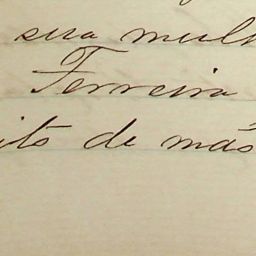 sua mulh
Ferreira
ito de más